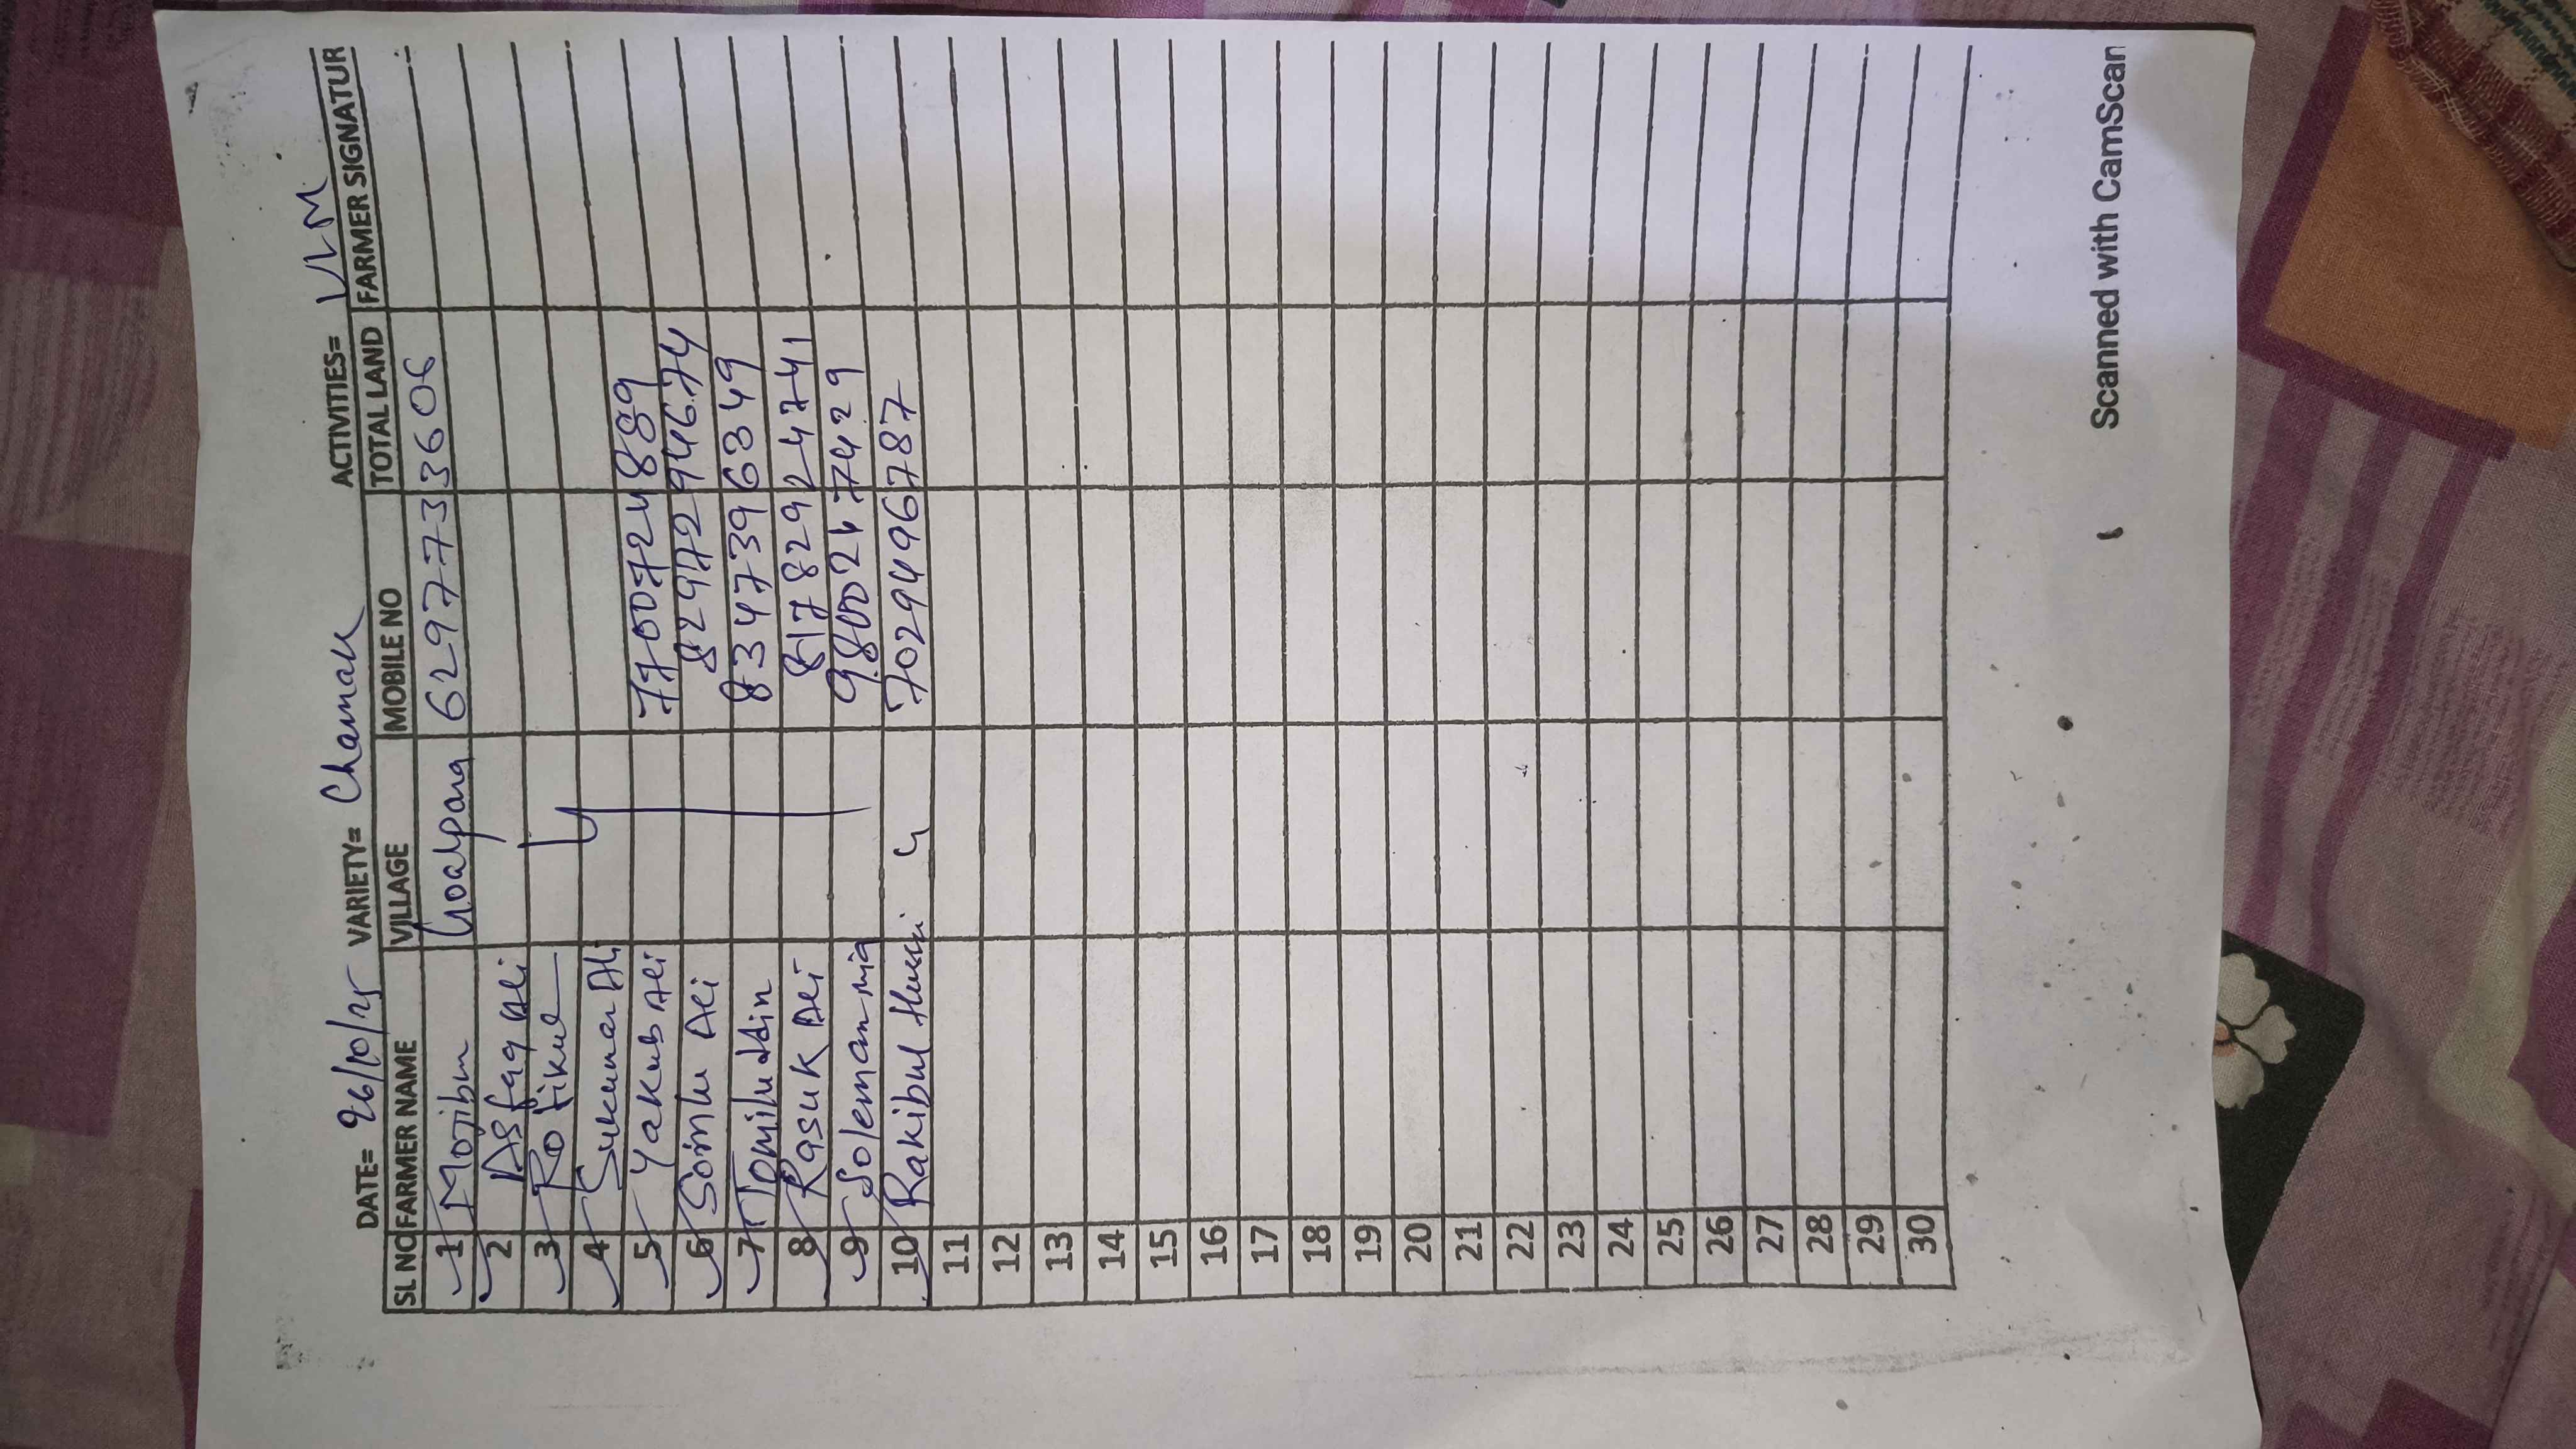 DATE= 26/10/25 VARIETY= Chamak ACTIVITIES= VLM
SL NO FARMER NAME VILLAGE MOBILE NO TOTAL LAND FARMER SIGNATUR
1 Mojibur Goalpara 6297733606
2 Asfaq Ali
3 Rofikul
4 Sukumar Ali
5 Yakub Ali 7700724889
6 Somlu Ali 8297294674
7 Tomiluddin 8347396349
8 Rasuk Ali 8178292474
9 Solemanmia
10 Rakibul 7029496787
11
12
13
14
15
16
17
18
19
20
21
22
23
24
25
26
27
28
29
30
Scanned with CamScan